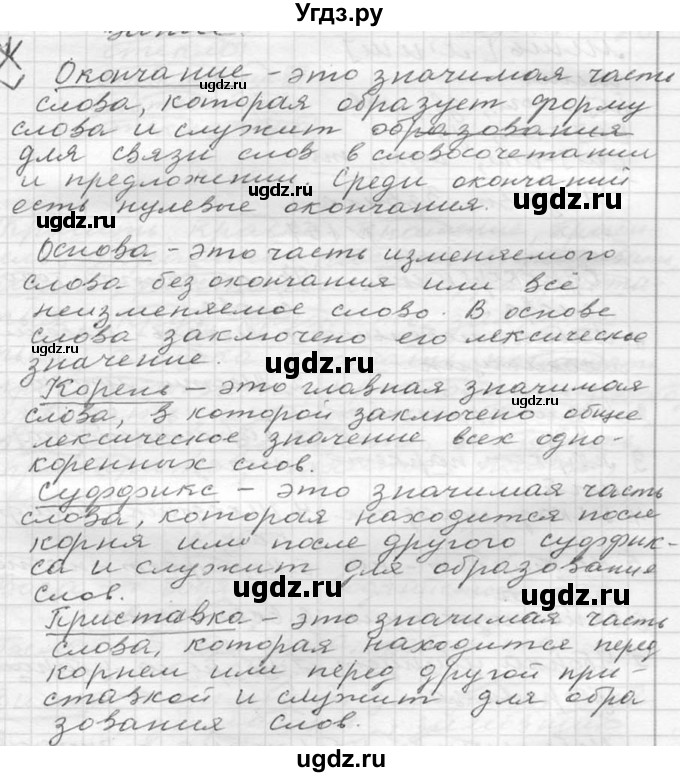 Угдз.ру
Окончание – это значимая часть
слова, которая образует форму
слова и служит образования
для связи слов в словосочетании
и предложении. Среди окончаний
есть нулевые окончания.
Основа – это часть изменяемого
слова без окончания или всё
неизменяемое слово. В основе
слова заключено его лексическое
значение.
Корень – это главная значимая
слова, в которой заключено общее
лексическое значение всех одно-
коренных слов.
Суффикс – это значимая часть
слова, которая находится после
корня или после другого суффик-
са и служит для образования
слов.
Приставка – это значимая часть
слова, которая находится перед
корнем или перед другой при-
ставкой и служит для обра
зования слов.
ugdz.ru
ugdz.ru
ugdz.ru
ugdz.ru
ugdz.ru
ugdz.ru
ugdz.ru
ugdz.ru
ugdz.ru
ugdz.ru
ugdz.ru
ugdz.ru